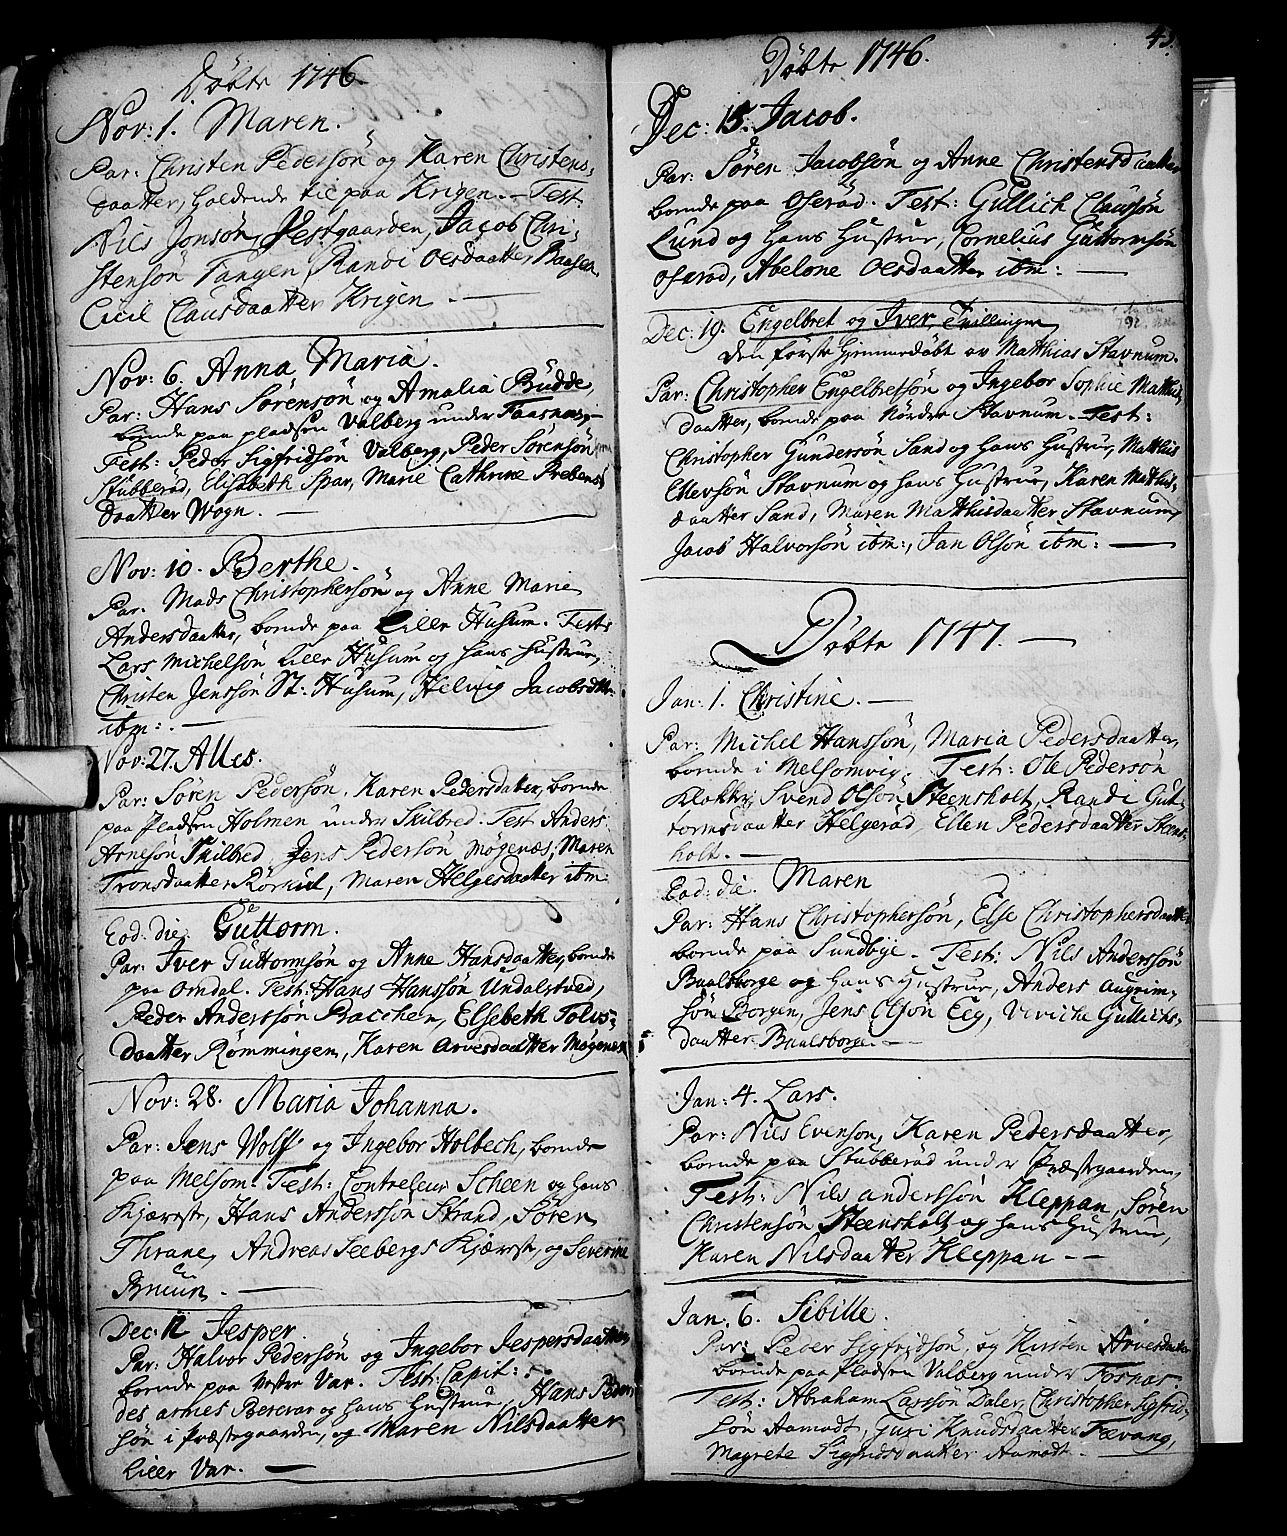 Döbte 1746.
Nov: 1. Maren.
Par: Christen Pedersön og Karen Christens-
daatter, holdende til paa Krigen. Test
Nils Jonsön Præstgaarden, Jacob Chri-
stensön Tangen, Randi Olsdaatter Baasen
Cicil Clausdaatter Krigen. —
Nov: 6. Anna Maria.
Par: Hans Sörensön og Amalia Budde,
boende paa pladsen Valberg under Faasnæs,
Test: Peder Sigfridsön Valberg, Peder Sörensön
Stubberöd, Elisabeth Spar, Marie Cathrine Prebens
daatter Wogn. —
Nov: 10. Berthe.
Par: Mads Christophersön og Anne Marie
Andersdaatter, boende paa Lille Husum. Test:
Lars Michelsön Lille Husum og hans Hustrue,
Christen Jenssön St: Husum, Helvig Jacobsdtter
ibm: —
Nov: 27. Alles.
Par: Sören Pedersön. Karen Pedersdatter, boende
paa Pladsen Holmen under Skilbred. Test Anders
Arnesön Skilbred, Jens Pedersön Mögenæs, Maren
Tronsdaatter, Maren Helgesdaatter ibm
Eod: die. Guttorm.
Par: Iver Guttormsön og Anne Hansdaatter, boende
paa Omdal. Test: Hans Hanssön Undalstved,
Peder Anderssön Bacchen, Elsebeth Tolvs-
daatter Römmingen, Karen Arvesdaatter Mögenæs
Nov: 28. Maria Johanna.
Par: Jens Wolff og Ingebor Holbech, boende
paa Melsom. Test: Contreleur Scheen og hans
Kjæreste, Hans Anderssön Strand, Sören
Thrane, Andreas Seebergs Kjærest, og Severine
Bruun. —
Dec: 12 Jesper.
Par: Halvor Pedersön og Ingebor Jespersdaatter
boende paa Vestre Var. Test: Capit:
des armes Berevar og hans Hustrue, Hans Peder
sön i Præstegaarden, og Maren Nilsdaatter
Liller Var. —
Döbte 1746.
Dec: 15. Jacob.
Par: Sören Jacobsön og Anne Christensdaatter
boende paa Oseröd. Test: Gullich Claussön
Lund og hans Hustrue, Cornelius Guttormsön
Oseröd, Abelone Olsdaatter ibm: —
Dec: 19. Engelbret og Iver, Tvillinger,
den förste hjemmedöbt av Matthias Stavnum.
Par: Christopher Engelbretsön og Ingebor Sophie Matthis
daatter, boende paa Nördre Stavnum. Test:
Christopher Gundersön Sand og hans Hustrue, Matthis
Ellevsön Stavnum og hans Hustrue, Karen Mathis-
daatter Sand, Maren Matthisdaatter Stavnum,
Jacob Halvorsön ibm:, Jan Olsön ibm: —
Döbte 1747. —
Jan: 1. Christine. —
Par: Michel Hanssön, Maria Pedersdaatter,
boende i Melsomvig. Test: Ole Pederson
Klokker, Svend Olsön Steensholt, Randi Gut-
tormsdaatter Helgeröd, Ellen Pedersdaatter Steens
holt. —
Eod: die. Maren
Par: Hans Christophersön, Else Christophersdaatter
boende paa Sundbye. Test: Nils Anderssön
Buulsborge og hans Hustrue, Anders Augrim-
sön Borgen, Jens Elsön Eeg, Vivicke Gullichs-
daatter Buulsborge —
Jan: 4. Lars.
Par: Nils Evenson, Karen Pedersdaatter,
boende paa Stubberöd under Præstegaarden,
Test: Nils anderssön Kleppan, Sören
Christensön Steensholt og hans Hustrue,
Karen Nilsdaatter Kleppan — —
Jan: 6. Sibille.
Par: Peder Sigfridsön, og Kirsten Arvesdatter
boende paa Pladsen Valberg under Fosnæs
Test: Abraham Larssön Daler, Christopher Sigfrid-
sön Aamodt, Guri Knudsdaatter Fævang,
Magrete Sigfridsdaatter Aamodt. —